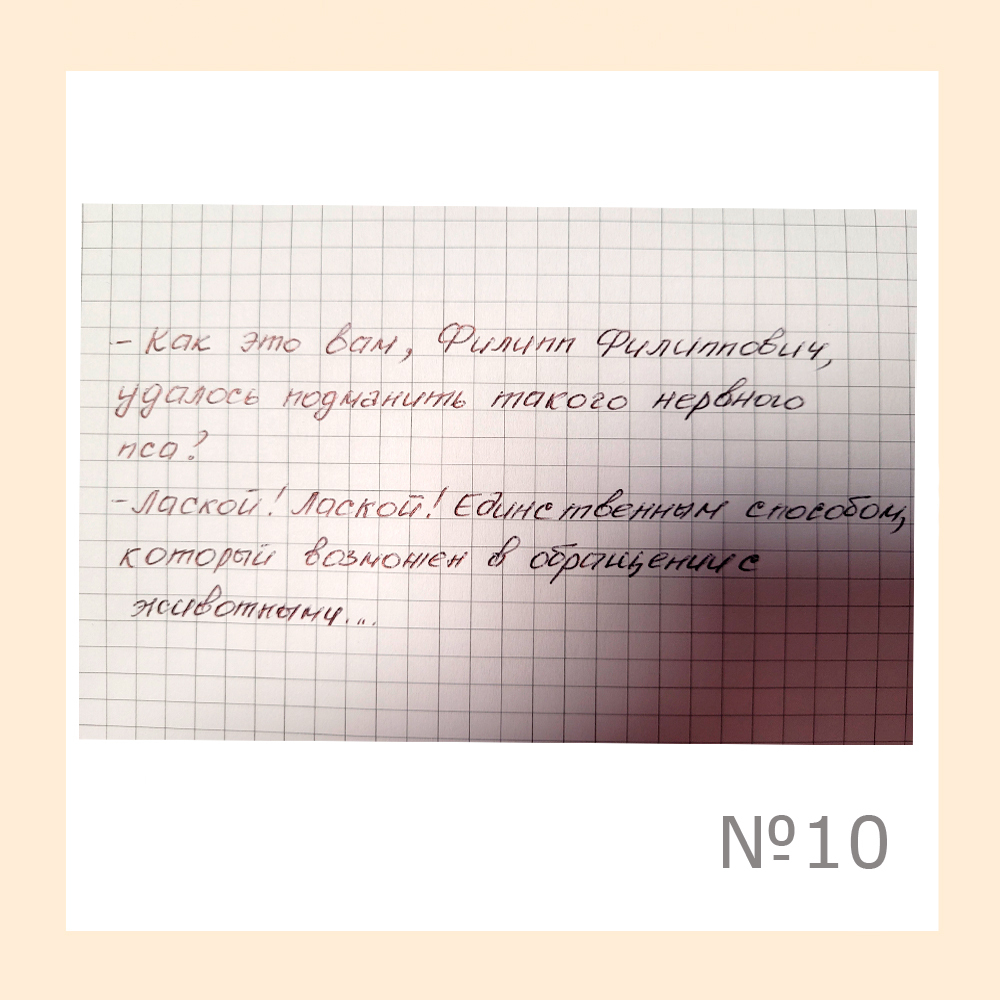 - Как это вам, Филипп Филиппович,
удалось подманить такого нервного
пса?
- Лаской! Лаской! Единственным способом,
который возможен в обращении с
животными...
№10